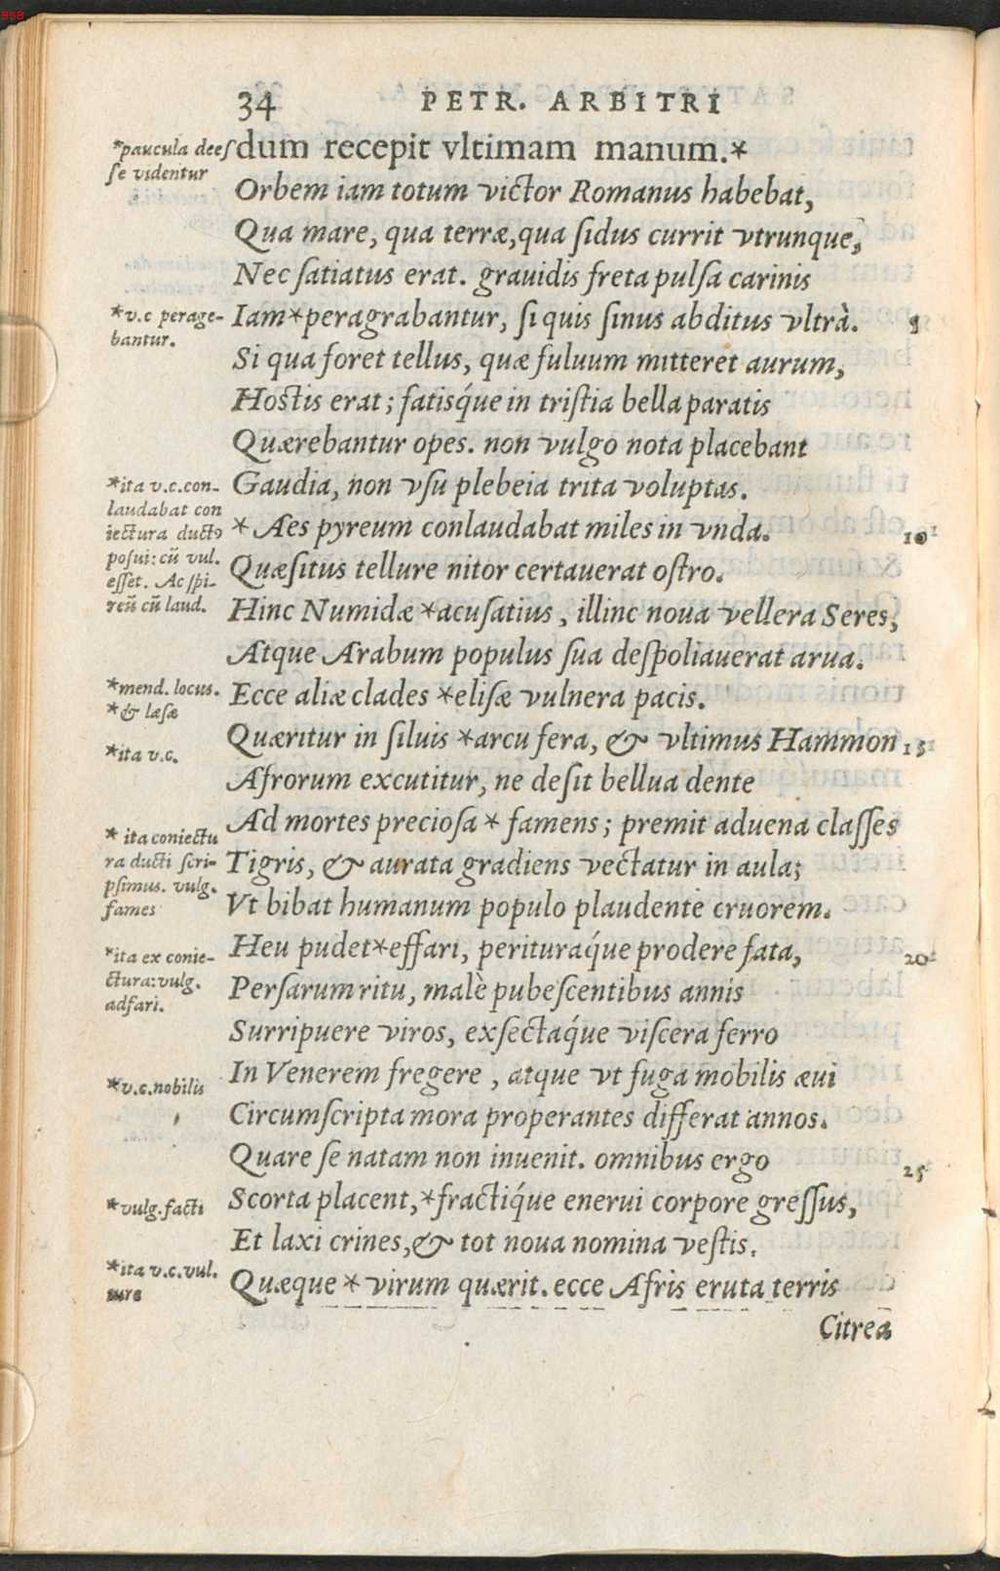 858
34 PETR. ARBITRI
*paucula deeſ
ſe videntur
dum recepit vltimam manum.*
Orbem iam totum victor Romanus habebat,
Qua mare, qua terræ, qua ſidus currit vtrunque,
Nec ſatiatus erat. grauidis freta pulſa carinis
*v.c perage-
bantur.
Iam *peragrabantur, ſi quis ſinus abditus vltrà. 5
Si qua foret tellus, quæ fuluum mitteret aurum,
Hostis erat; fatisq́ue in triſtia bella paratis
Quærebantur opes. non vulgo nota placebant
*ita v.c.con-
laudabat con
iectura ducto
poſui: cū vul.
eſſet. Ac ſpi-
reū cū laud.
Gaudia, non vſu plebeia trita voluptas.
* Aes pyreum conlaudabat miles in vnda. 10
Quæſitus tellure nitor certauerat oſtro.
Hinc Numidæ *acuſatius, illinc noua vellera Seres,
Atque Arabum populus ſua deſpoliauerat arua.
*mend. locus.
*& læſæ
Ecce aliæ clades *eliſæ vulnera pacis.
*ita v.c.
Quæritur in ſiluis *arcu fera, & vltimus Hammon 15
Afrorum excutitur, ne deſit bellua dente
Ad mortes precioſa * famens; premit aduena claſſes
* ita coniectu
ra ducti ſcri-
pſimus. vulg.
fames
Tigris, & aurata gradiens vectatur in aula;
Vt bibat humanum populo plaudente cruorem.
*ita ex conie-
ctura: vulg.
adfari.
Heu pudet *effari, perituraq́ue prodere fata, 20
Perſarum ritu, malè pubeſcentibus annis
Surripuere viros, exſectaq́ue viſcera ferro
In Venerem fregere, atque vt fuga mobilis æui
*v.c.nobilis
Circumſcripta mora properantes differat annos.
Quare ſe natam non inuenit. omnibus ergo 25
*vulg. facti
Scorta placent, *fractiq́ue enerui corpore greſſus,
Et laxi crines, & tot noua nomina veſtis.
*ita v.c. vul.
Quæque * virum quærit. ecce Afris eruta terris
Citrea